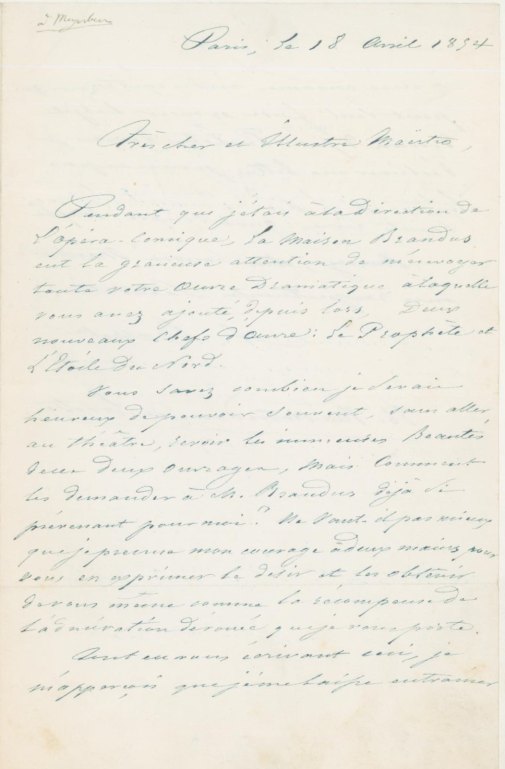 à Meyerbeer
Paris, le 18 Avril 1854
Très cher et Illustre Maëstro,
Pendant que j'étais à la Direction de
l'Opéra-Comique, la Maison Brandus
eut la gracieuse attention de m'envoyer
toute votre Œuvre Dramatique à laquelle
vous avez ajouté, depuis lors, Deux
nouveaux Chefs d'Œuvre: Le Prophète et
L'Etoile du Nord.
Vous savez combien je serais
heureux de pouvoir souvent, sans aller
au théâtre, revoir les immenses Beautés
de ces deux ouvrages, Mais Comment
les demander à M. Brandus déjà si
prévenant pour moi? Ne vaut-il pas mieux
que je prenne mon courage à deux mains pour
vous en exprimer le désir et les obtenir
de vous même comme la récompense de
l'admiration dévouée que je vous porte.
Tout en vous écrivant ceci, je
m'apperçois que je me laisse entraîner